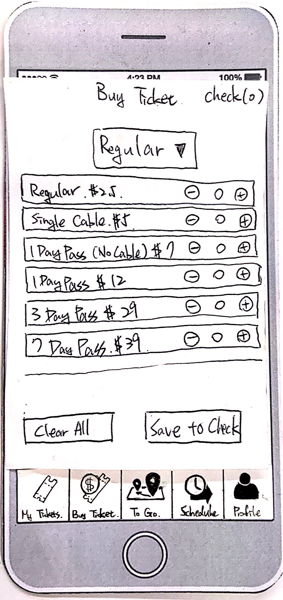 4:23 PM 100%
Buy Ticket. check(0)
Regular ▼
Regular. $2.5. - 0 +
Single Cable. $5 - 0 +
1 Day Pass (No Cable) $7 - 0 +
1 Day Pass $12 - 0 +
3 Day Pass $29 - 0 +
7 Day Pass. $39. - 0 +
Clear All Save to Check
My Tickets. Buy Ticket. To Go. Schedule Profile